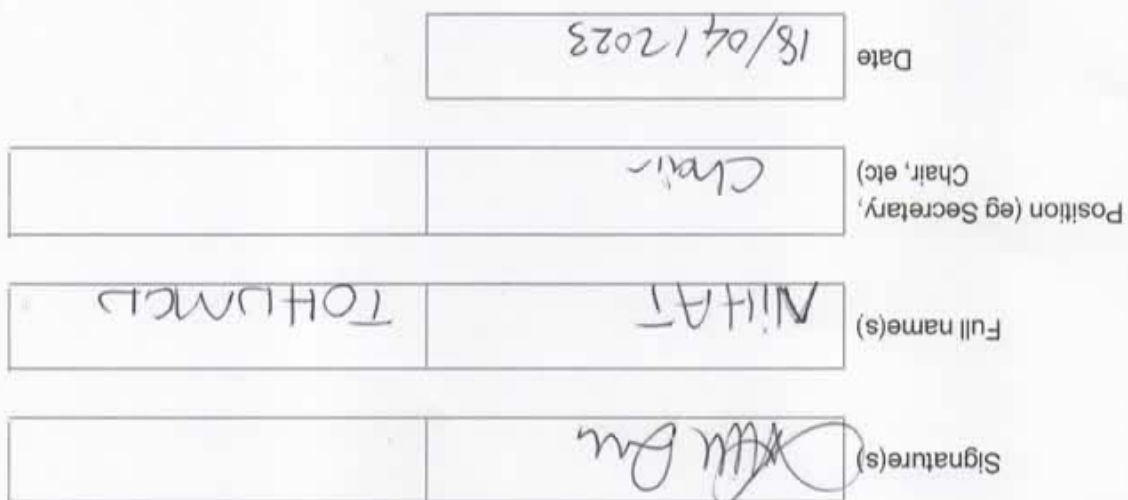 Signature(s)
Full name(s) NiHAT TOHUMCU
Position (eg Secretary,
Chair, etc) Chair
Date 18/04/2023